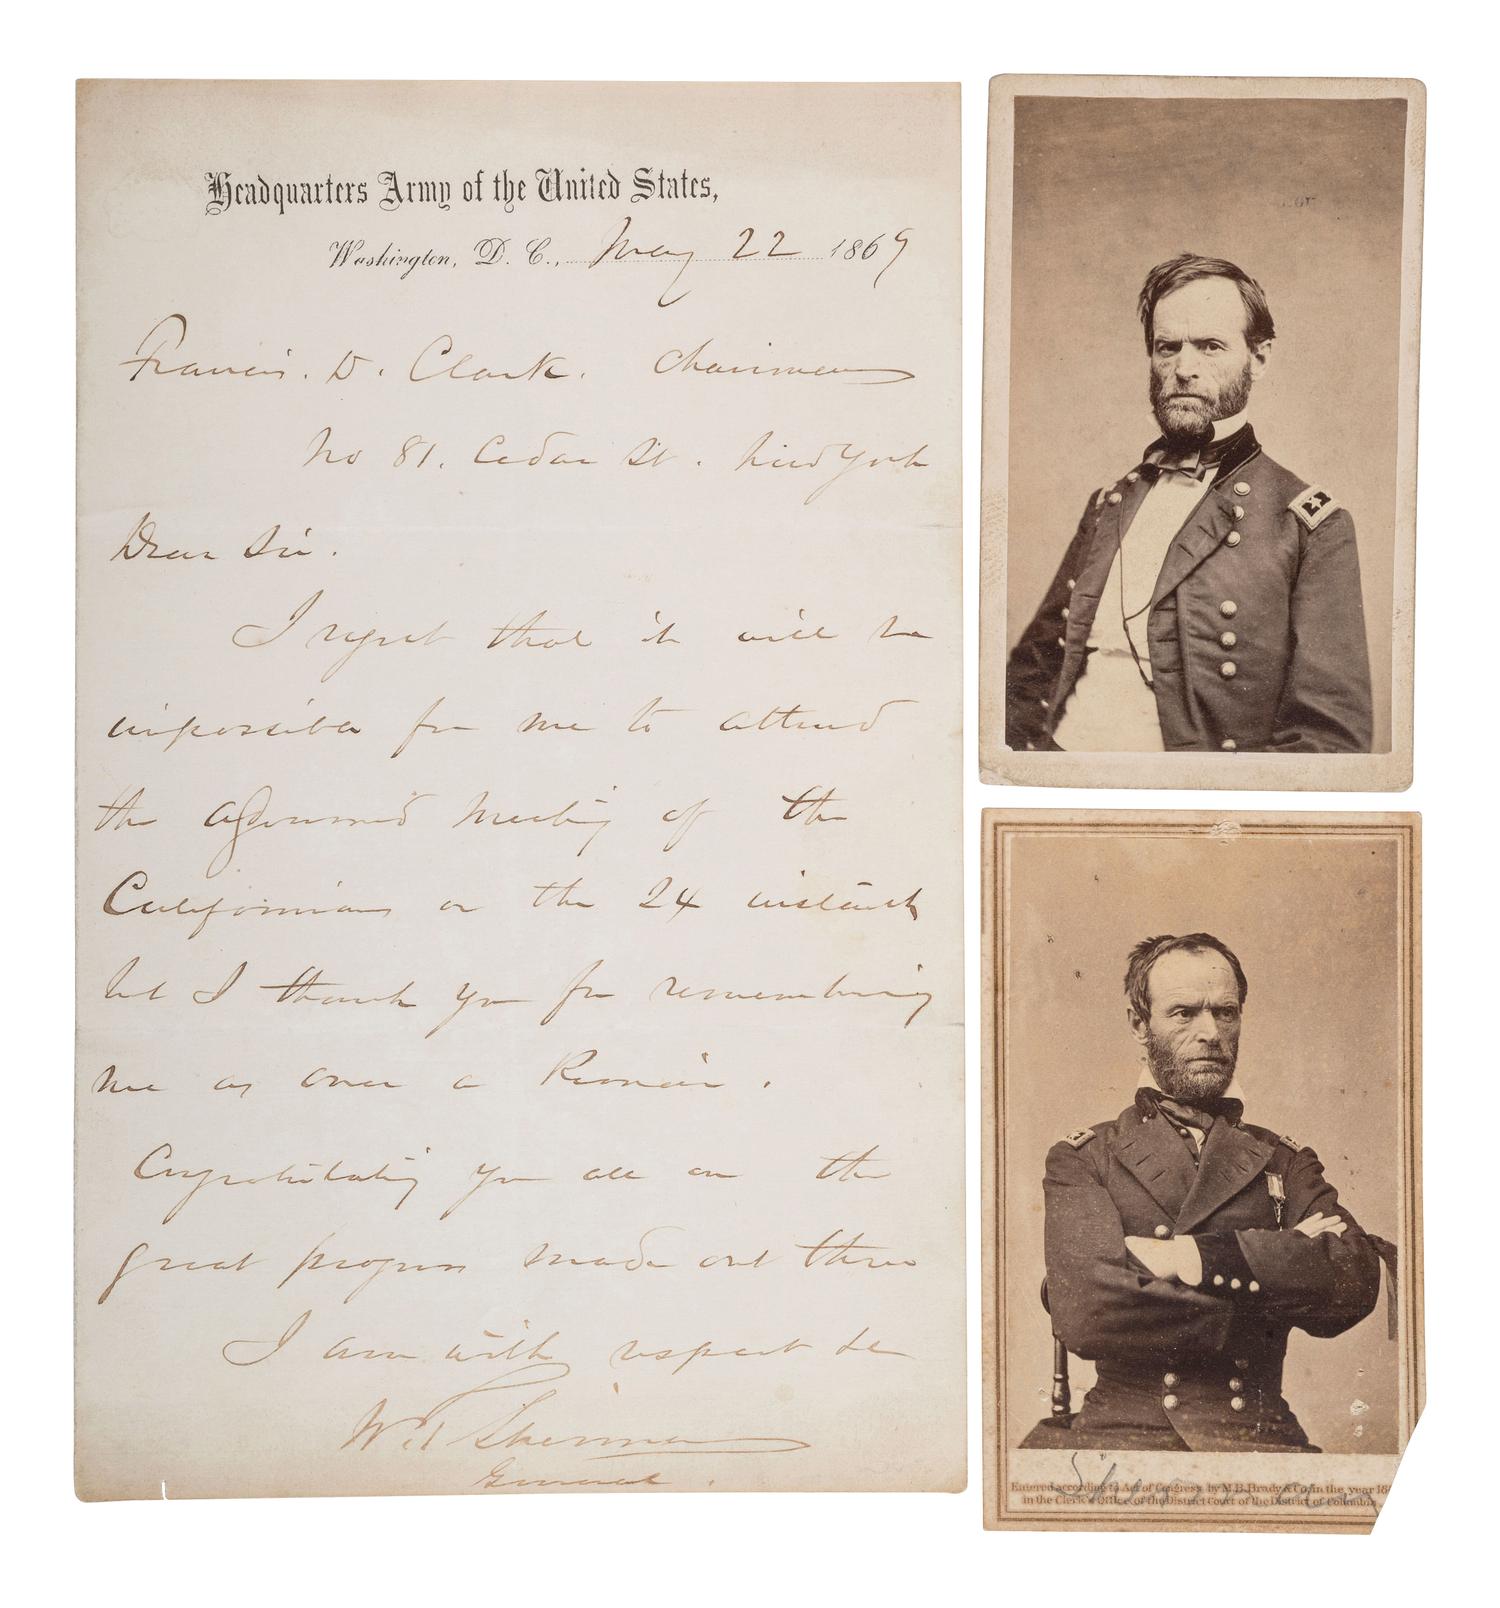 Headquarters Army of the United States,
Washington, D. C., May 22 1869
Francis. D. Clark. Chairman
No 81. Cedar St. New York
Dear Sir.
I regret that it will be
impossible for me to attend
the adjourned Meeting of the
Californians on the 24 instant
but I thank you for remembering
me as once a Pioneer.
Congratulating you all on the
great progress made out there
I am with respect &c
W. T. Sherman
General.
Entered according to Act of Congress, by M. B. Brady & Co, in the year 18
in the Clerk's Office of the District Court of the District of Columbia